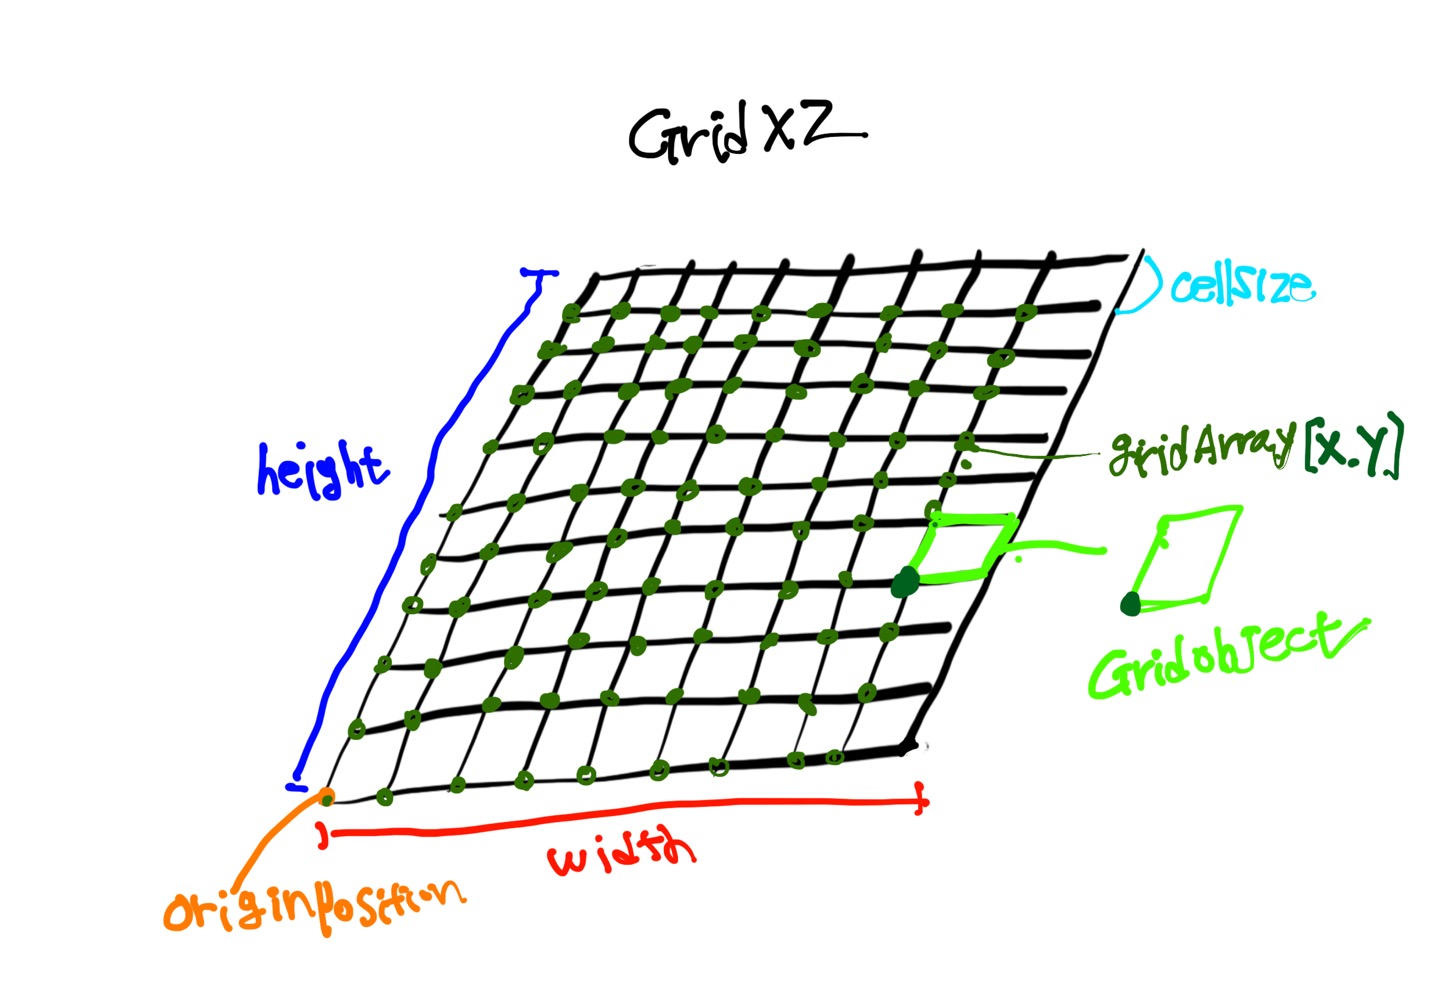 Grid XZ
cellsize
height
gridArray[x.y]
Gridobject
width
originposition